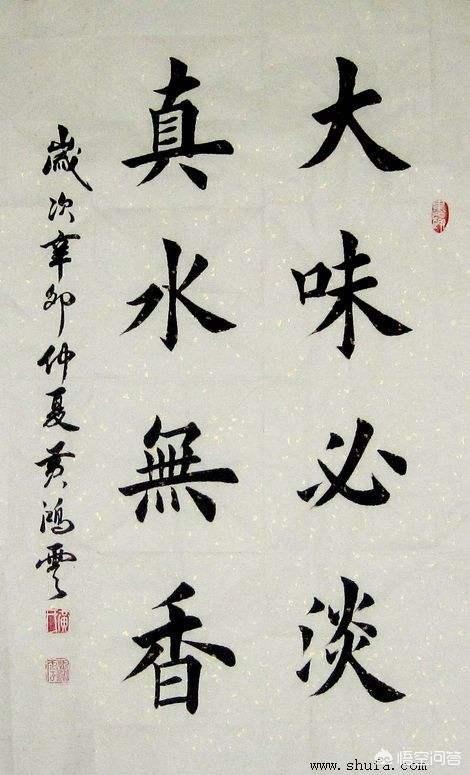 大味必淡
真水無香
歲次辛卯仲夏黃鴻雲
www.shufa.com
悟空问答